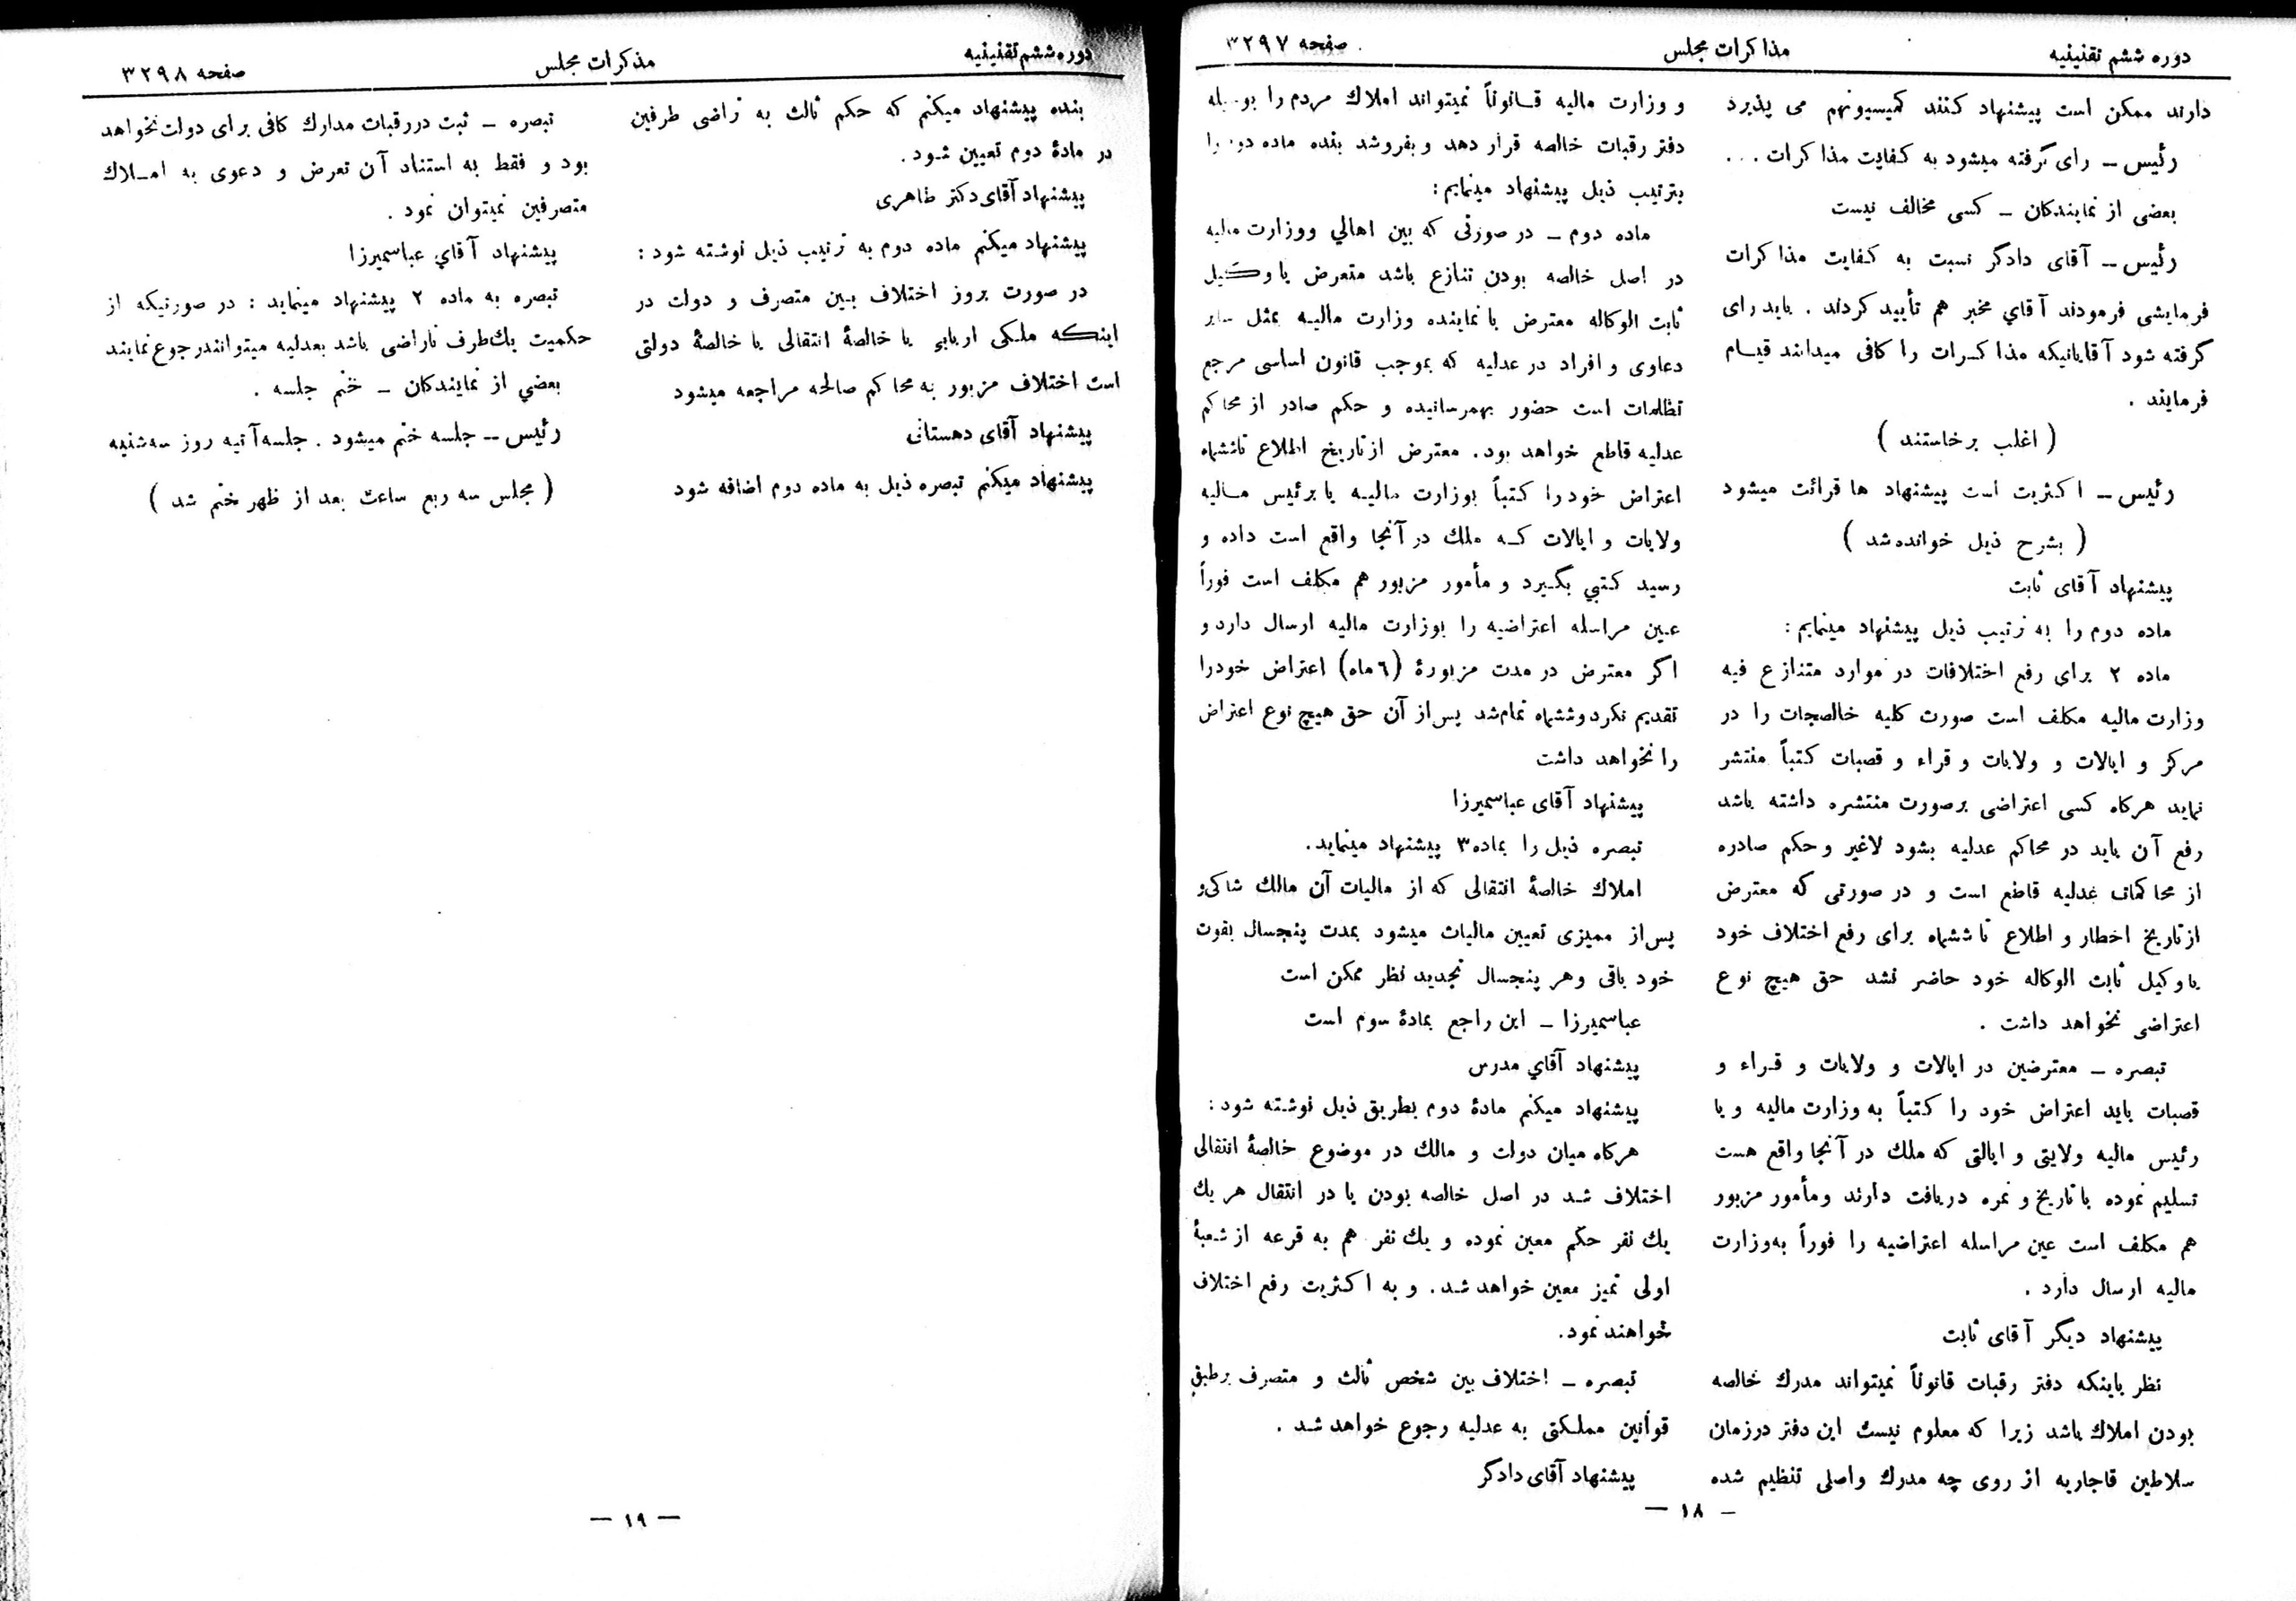 دوره ششم تقنینیه
مذاکرات مجلس
صفحه ۳۲۹۷
دارند ممکن است پیشنهاد کنند کمیسیونهم می پذیرد
رئیس – رای گرفته میشود به کفایت مذاکرات . . .
بعضی از نمایندگان – کسی مخالف نیست
رئیس – آقای دادگر نسبت به کفایت مذاکرات
فرمایشی فرمودند آقاي مخبر هم تأیید کردند . باید رای
گرفته شود آقایانیکه مذاکرات را کافی میدانند قیام
فرمایند .
( اغلب برخاستند )
رئیس – اکثریت است پیشنهاد ها قرائت میشود
( بشرح ذیل خوانده شد )
پیشنهاد آقای ثابت
ماده دوم را به ترتیب ذیل پیشنهاد مینمایم :
ماده ۲ برای رفع اختلافات در موارد متنازع فیه
وزارت مالیه مکلف است صورت کلیه خالصجات را در
مرکز و ایالات و ولایات و قراء و قصبات کتباً منتشر
نماید هرکاه کسی اعتراضی برصورت منتشره داشته باشد
رفع آن باید در محاکم عدلیه بشود لاغیر و حکم صادره
از محاکمات عدلیه قاطع است و در صورتی که معترض
از تاریخ اخطار و اطلاع تا ششماه برای رفع اختلاف خود
یا وکیل ثابت الوکاله خود حاضر نشد حق هیچ نوع
اعتراضی نخواهد داشت .
تبصره – معترضین در ایالات و ولایات و قراء و
قصبات باید اعتراض خود را کتباً به وزارت مالیه و یا
رئیس مالیه ولایتی و ایالتی که ملك در آنجا واقع هست
تسلیم نموده با تاریخ و نمره دریافت دارند و مأمور مزبور
هم مکلف است عین مراسله اعتراضیه را فوراً به وزارت
مالیه ارسال دارد .
پیشنهاد دیگر آقای ثابت
نظر باینکه دفتر رقبات قانوناً نمیتواند مدرك خالصه
بودن املاك باشد زیرا که معلوم نیست این دفتر در زمان
سلاطین قاجاریه از روی چه مدرك واصلی تنظیم شده
و وزارت مالیه قانوناً نمیتواند املاك مردم را بوسیله
دفتر رقبات خالصه قرار دهد و بفروشد بنده ماده دوم را
بترتیب ذیل پیشنهاد مینمایم :
ماده دوم – در صورتی که بین اهالي ووزارت مالیه
در اصل خالصه بودن تنازع باشد متعرض یا وکیل
ثابت الوکاله معترض با نماینده وزارت مالیه بمثل سایر
دعاوی و افراد در عدلیه که بموجب قانون اساسی مرجع
تظلمات است حضور بهمرسانیده و حکم صادر از محاکم
عدلیه قاطع خواهد بود. معترض از تاریخ اطلاع تاششماه
اعتراض خود را کتباً بوزارت مالیه یا برئیس مالیه
ولایات و ایالات که ملك در آنجا واقع است داده و
رسید کتبي بگیرد و مأمور مزبور هم مکلف است فوراً
عین مراسله اعتراضیه را بوزارت مالیه ارسال دارد و
اکر معترض در مدت مزبورهٔ (۶ماه) اعتراض خود را
تقدیم نکرد و ششماه تمام شد پس از آن حق هیچ نوع اعتراض
را نخواهد داشت
پیشنهاد آقای عباسمیرزا
تبصره ذیل را بماده ۳ پیشنهاد مینماید.
املاك خالصهٔ انتقالی که از مالیات آن مالك شاکی و
پس از ممیزی تعیین مالیات میشود بمدت پنجسال بقوت
خود باقی وهر پنجسال تجدید نظر ممکن است
عباسمیرزا – این راجع بمادهٔ سوم است
پیشنهاد آقاي مدرس
پیشنهاد میکنم مادهٔ دوم بطریق ذیل نوشته شود :
هرکاه میان دولت و مالك در موضوع خالصهٔ انتقالی
اختلاف شد در اصل خالصه بودن یا در انتقال هر یك
یك نفر حکم معین نموده و یك نفر هم به قرعه از شعبهٔ
اولی تمیز معین خواهد شد. و به اکثریت رفع اختلاف
خواهند نمود.
تبصره – اختلاف بین شخص ثالث و متصرف برطبق
قوانین مملکتی به عدلیه رجوع خواهد شد .
پیشنهاد آقای دادگر
– ۱۸ –
دوره ششم تقنینیه
مذکرات مجلس
صفحه ۳۲۹۸
بنده پیشنهاد میکنم که حکم ثالث به تراضی طرفین
در مادهٔ دوم تعیین شود.
پیشنهاد آقای دکتر طاهری
پیشنهاد میکنم ماده دوم به ترتیب ذیل نوشته شود :
در صورت بروز اختلاف بین متصرف و دولت در
اینکه ملکی اربابي یا خالصهٔ انتقالی یا خالصهٔ دولتی
است اختلاف مزبور به محاکم صالحه مراجعه میشود
پیشنهاد آقای دهستانی
پیشنهاد میکنم تبصره ذیل به ماده دوم اضافه شود
تبصره – ثبت در رقبات مدارك کافی برای دولت نخواهد
بود و فقط به استناد آن تعرض و دعوی به املاك
متصرفین نمیتوان نمود .
پیشنهاد آقاي عباسمیرزا
تبصره به ماده ۲ پیشنهاد مینماید : در صورتیکه از
حکمیت یك طرف ناراضی باشد بعدلیه میتوانند رجوع نمایند
بعضي از نمایندکان – ختم جلسه .
رئیس – جلسه ختم میشود . جلسه آتیه روز سه شنبه
( مجلس سه ربع ساعت بعد از ظهر ختم شد )
– ۱۹ –